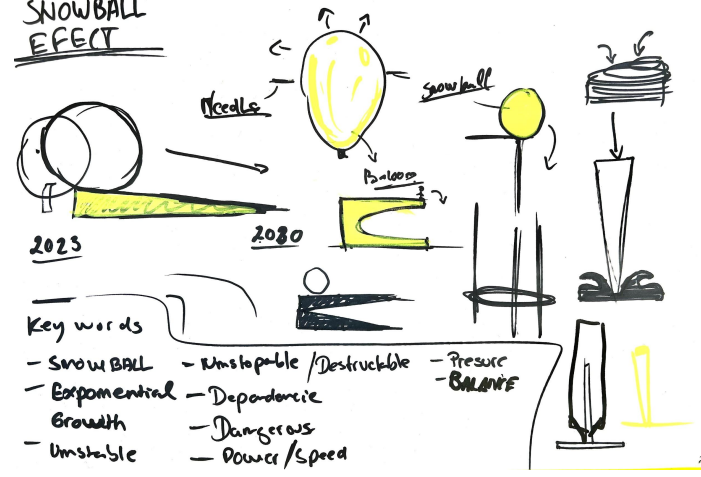 SNOWBALL
EFFECT
Needles
Snowball
Baloon
2023
2030
Key words
- SNOWBALL
- Exponential
Growth
- Unstable
- Unstopable / Destructable
- Dependencie
- Dangerous
- Power / Speed
- Presure
- BALANCE